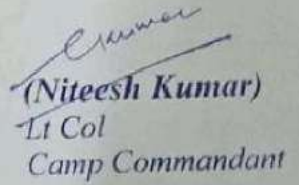 (Niteesh Kumar)
Lt Col
Camp Commandant